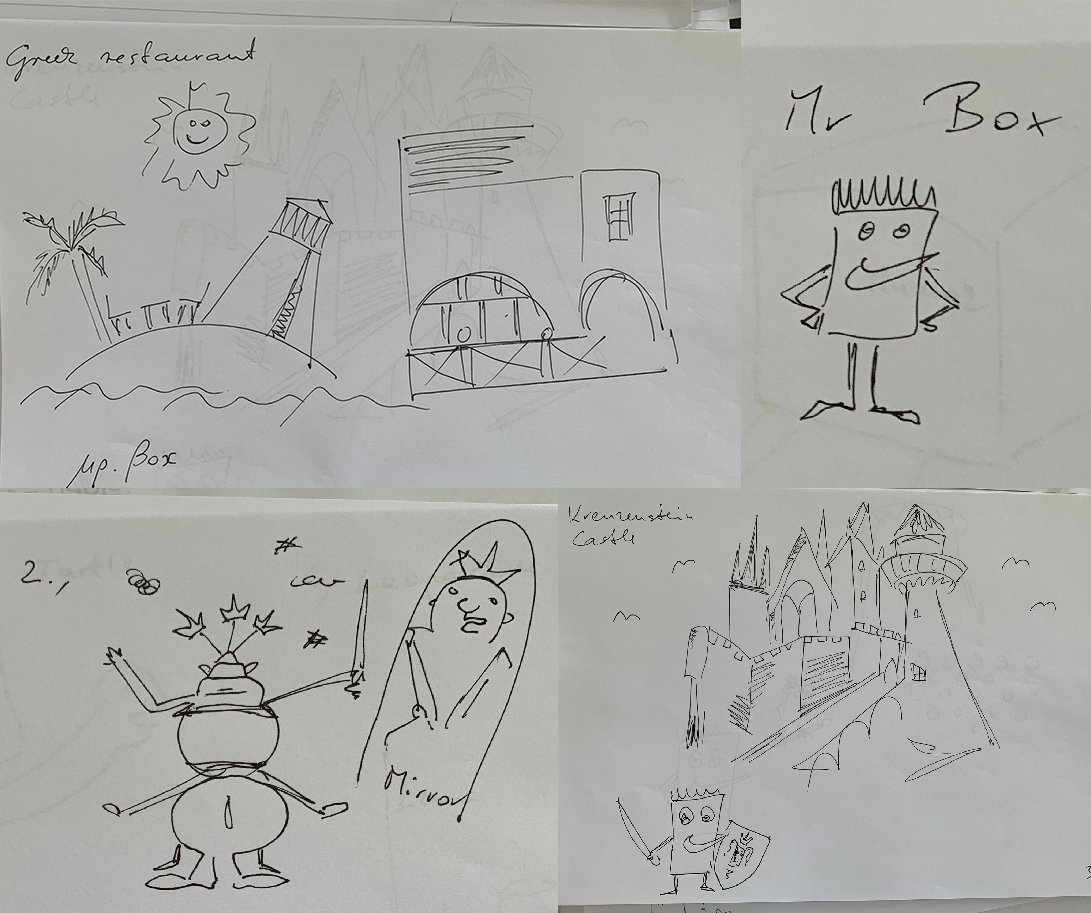 Greek restaurant
Mr. Box
Mr Box
2.,
Mirror
Kreuzenstein
Castle